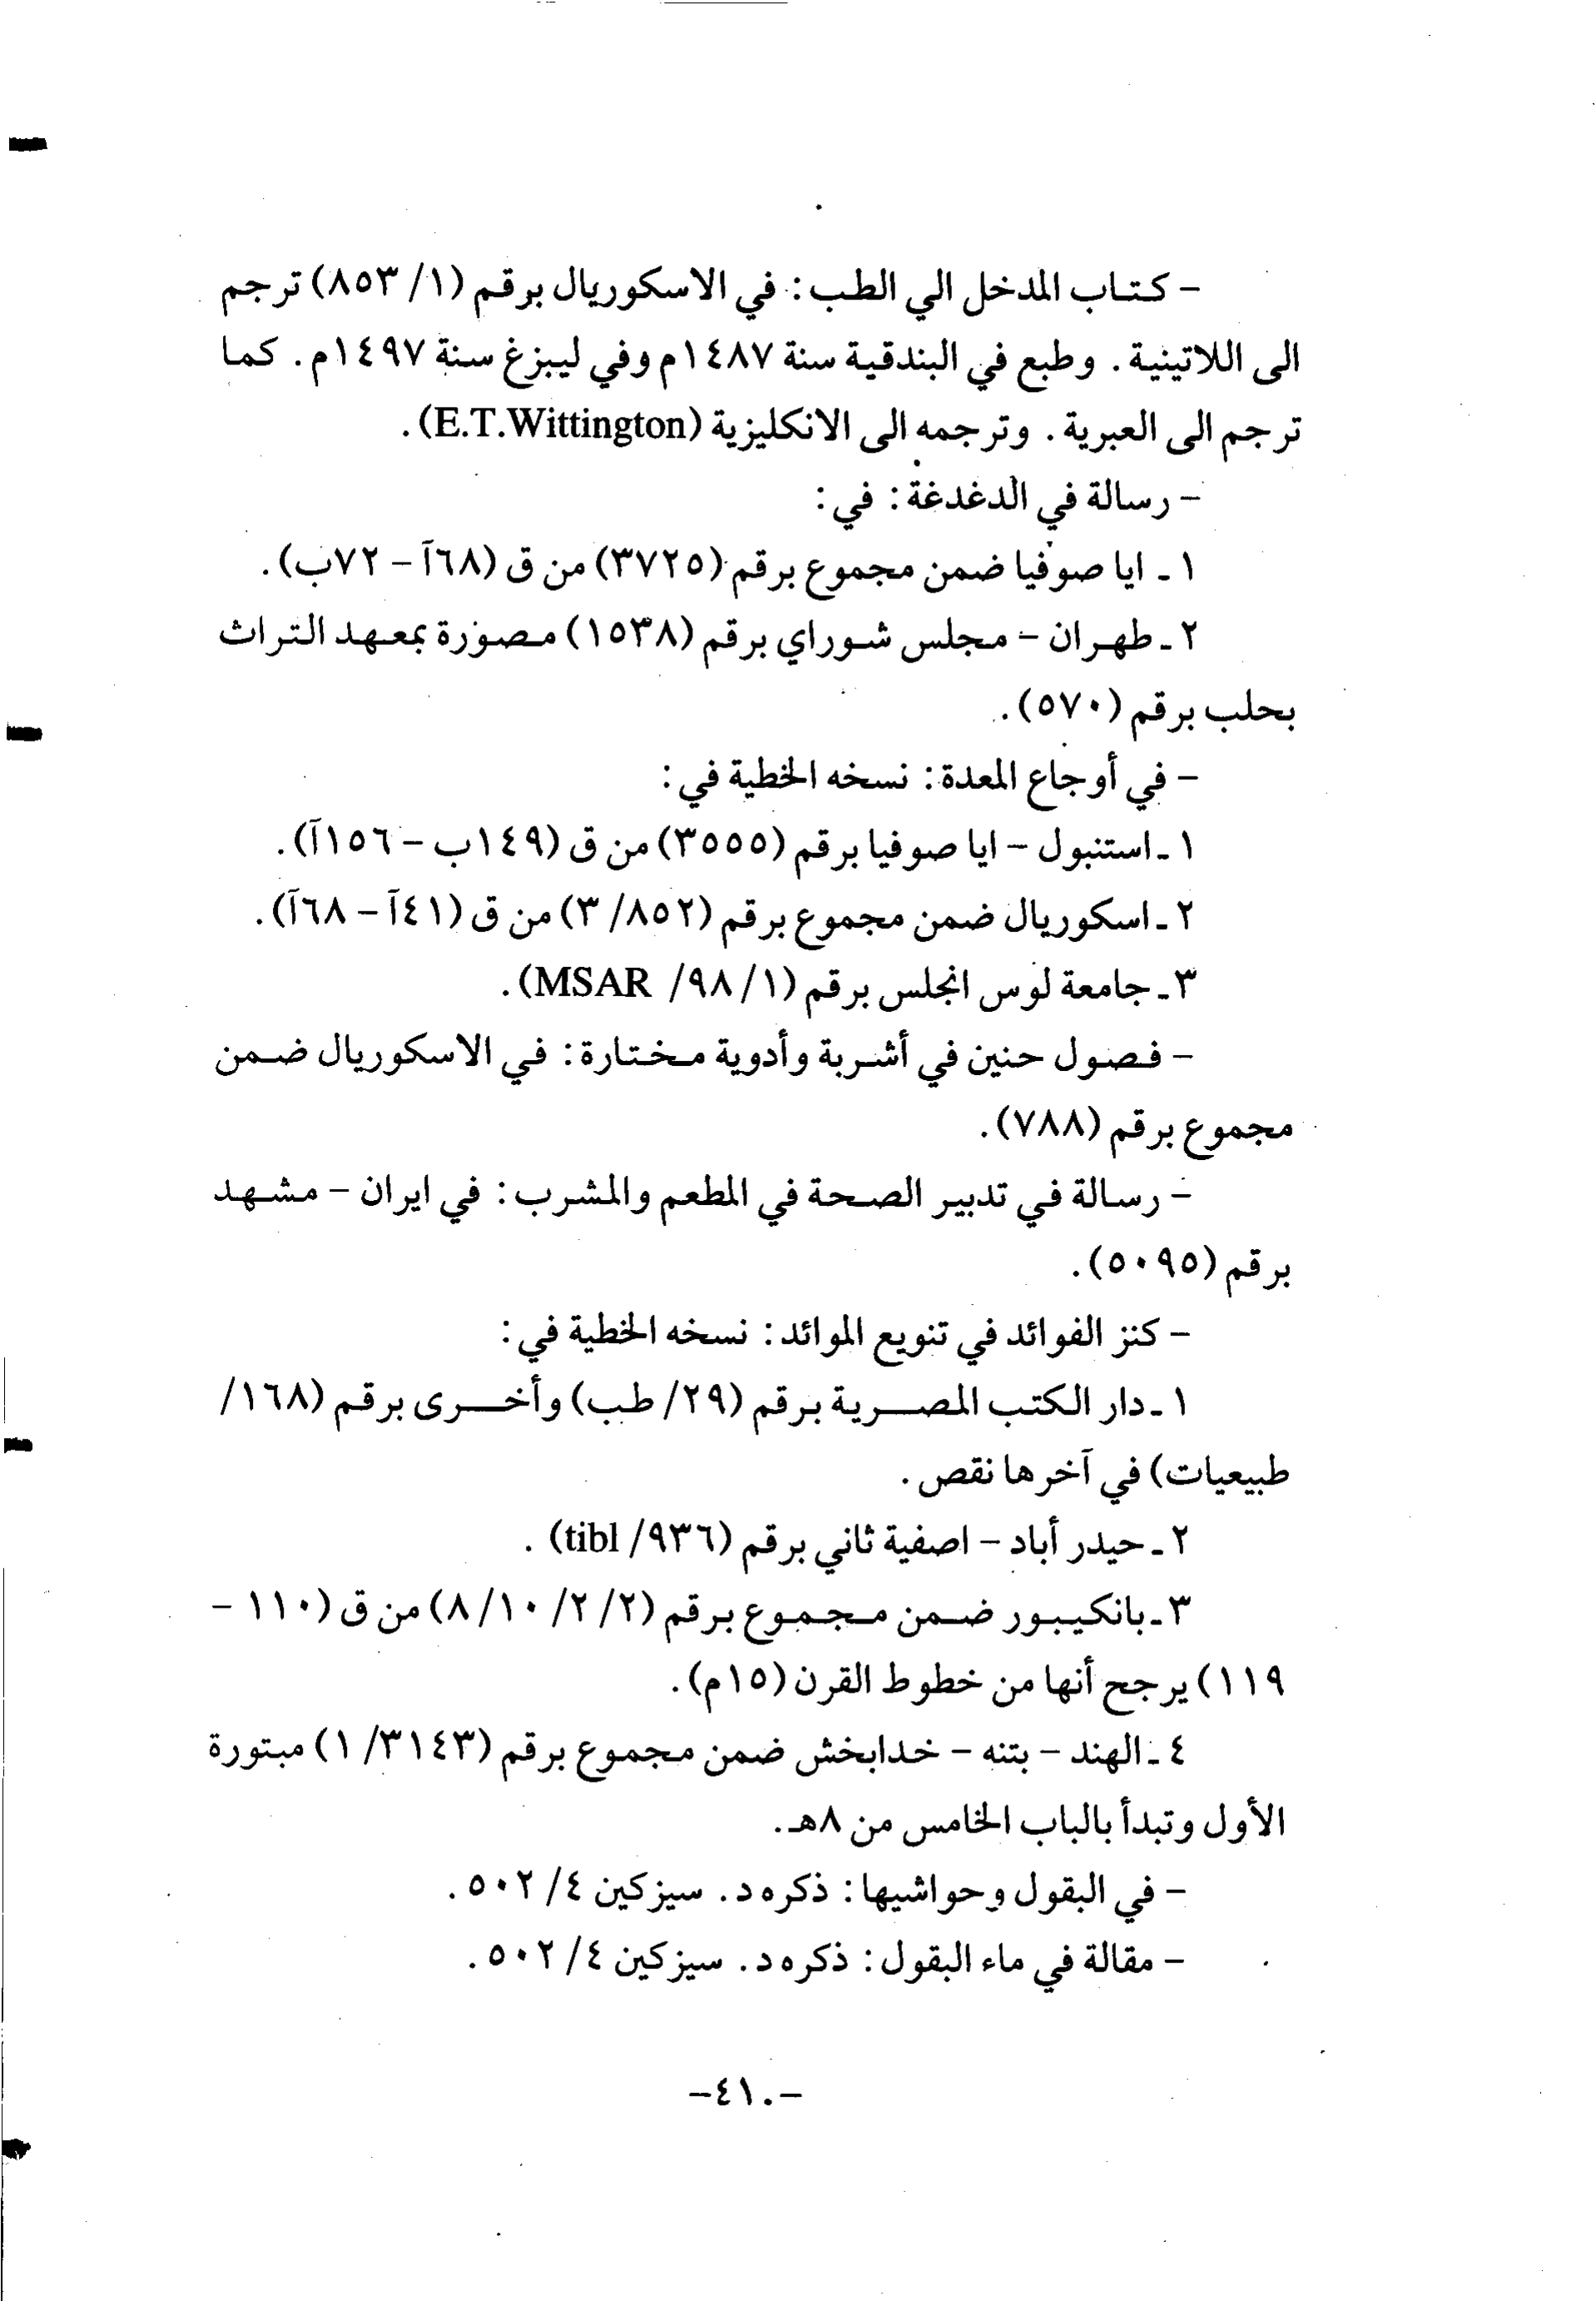 - كتاب المدخل الي الطب : في الاسكوريال برقم (١/ ٨٥٣) ترجم
الى اللاتينية . وطبع في البندقية سنة ١٤٨٧م وفي ليبزغ سنة ١٤٩٧م. كما
ترجم الى العبرية . وترجمه الى الانكليزية (E.T.Wittington).
- رسالة في الدغدغة : في :
١ ـ ايا صوفيا ضمن مجموع برقم (٣٧٢٥) من ق (٦٨آ - ٧٢ب).
٢ ـ طهران - مجلس شوراي برقم (١٥٣٨) مصورة بمعهد التراث
بحلب برقم (٥٧٠).
- في أوجاع المعدة : نسخه الخطية في :
١ ـ استنبول - ايا صوفيا برقم (٣٥٥٥) من ق (١٤٩ب - ١٥٦آ).
٢ ـ اسكوريال ضمن مجموع برقم (٨٥٢/ ٣) من ق (٤١آ - ٦٨آ).
٣ ـ جامعة لوس انجلس برقم (١/ ٩٨/ MSAR).
- فصول حنين في أشربة وأدوية مختارة : في الاسكوريال ضمن
مجموع برقم (٧٨٨).
- رسالة في تدبير الصحة في المطعم والمشرب : في ايران - مشهد
برقم (٥٠٩٥).
- كنز الفوائد في تنويع الموائد : نسخه الخطية في :
١ ـ دار الكتب المصرية برقم (٢٩/ طب) وأخرى برقم (١٦٨/
طبيعيات) في آخرها نقص .
٢ ـ حيدر أباد - اصفية ثاني برقم (٩٣٦/ tibl) .
٣ ـ بانكيبور ضمن مجموع برقم (٢/ ٢/ ١٠/ ٨) من ق (١١٠ -
١١٩) يرجح أنها من خطوط القرن (١٥م).
٤ ـ الهند - بتنه - خدابخش ضمن مجموع برقم (٣١٤٣/ ١) مبتورة
الأول وتبدأ بالباب الخامس من ٨هـ.
- في البقول وحواشيها : ذكره د . سيزكين ٤/ ٥٠٢ .
- مقالة في ماء البقول : ذكره د . سيزكين ٤/ ٥٠٢ .
-٤١٠-